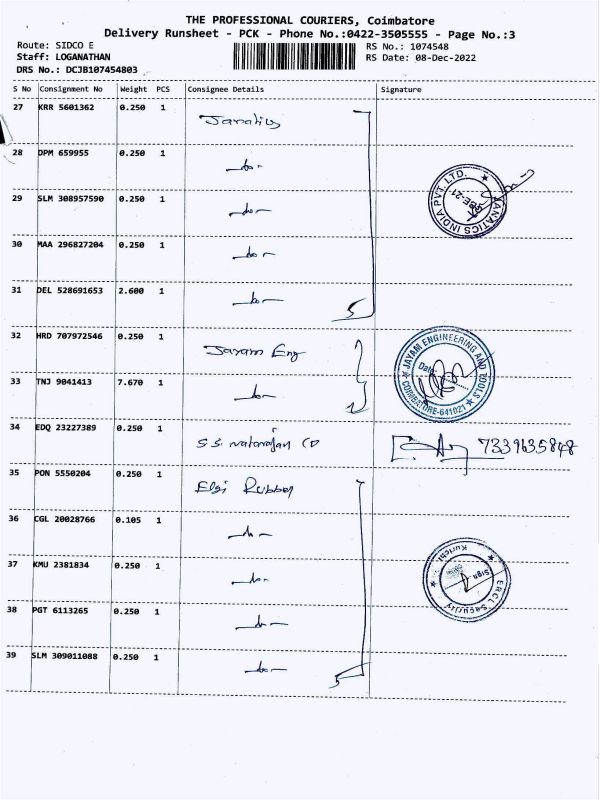 THE PROFESSIONAL COURIERS, Coimbatore
Delivery Runsheet - PCK - Phone No.:0422-3505555 - Page No.:3
Route: SIDCO E RS No.: 1074548
Staff: LOGANATHAN RS Date: 08-Dec-2022
DRS No.: DCJB107454803
S No Consignment No Weight PCS Consignee Details Signature
27 KRR 5601362 0.250 1 Janatics
28 DPM 659955 0.250 1 -do-
29 SLM 308957590 0.250 1 -do-
30 MAA 296827204 0.250 1 -do-
31 DEL 528691653 2.600 1 -do- 5
JANATICS INDIA PVT. LTD.
CBE-21
32 HRD 707972546 0.250 1 Jayam Eng
33 TNJ 9041413 7.670 1 -do- 2
JAYAM ENGINEERING AND TOOLS
Date:
COIMBATORE-641021
34 EDQ 23227389 0.250 1 S.S. natarajan CD 7339635848
35 PON 5550204 0.250 1 Elgi Rubber
36 CGL 20028766 0.105 1 -do-
37 KMU 2381834 0.250 1 -do-
38 PGT 6113265 0.250 1 -do-
39 SLM 309011088 0.250 1 -do- 5
ERCL Security
Sign
Kurichi